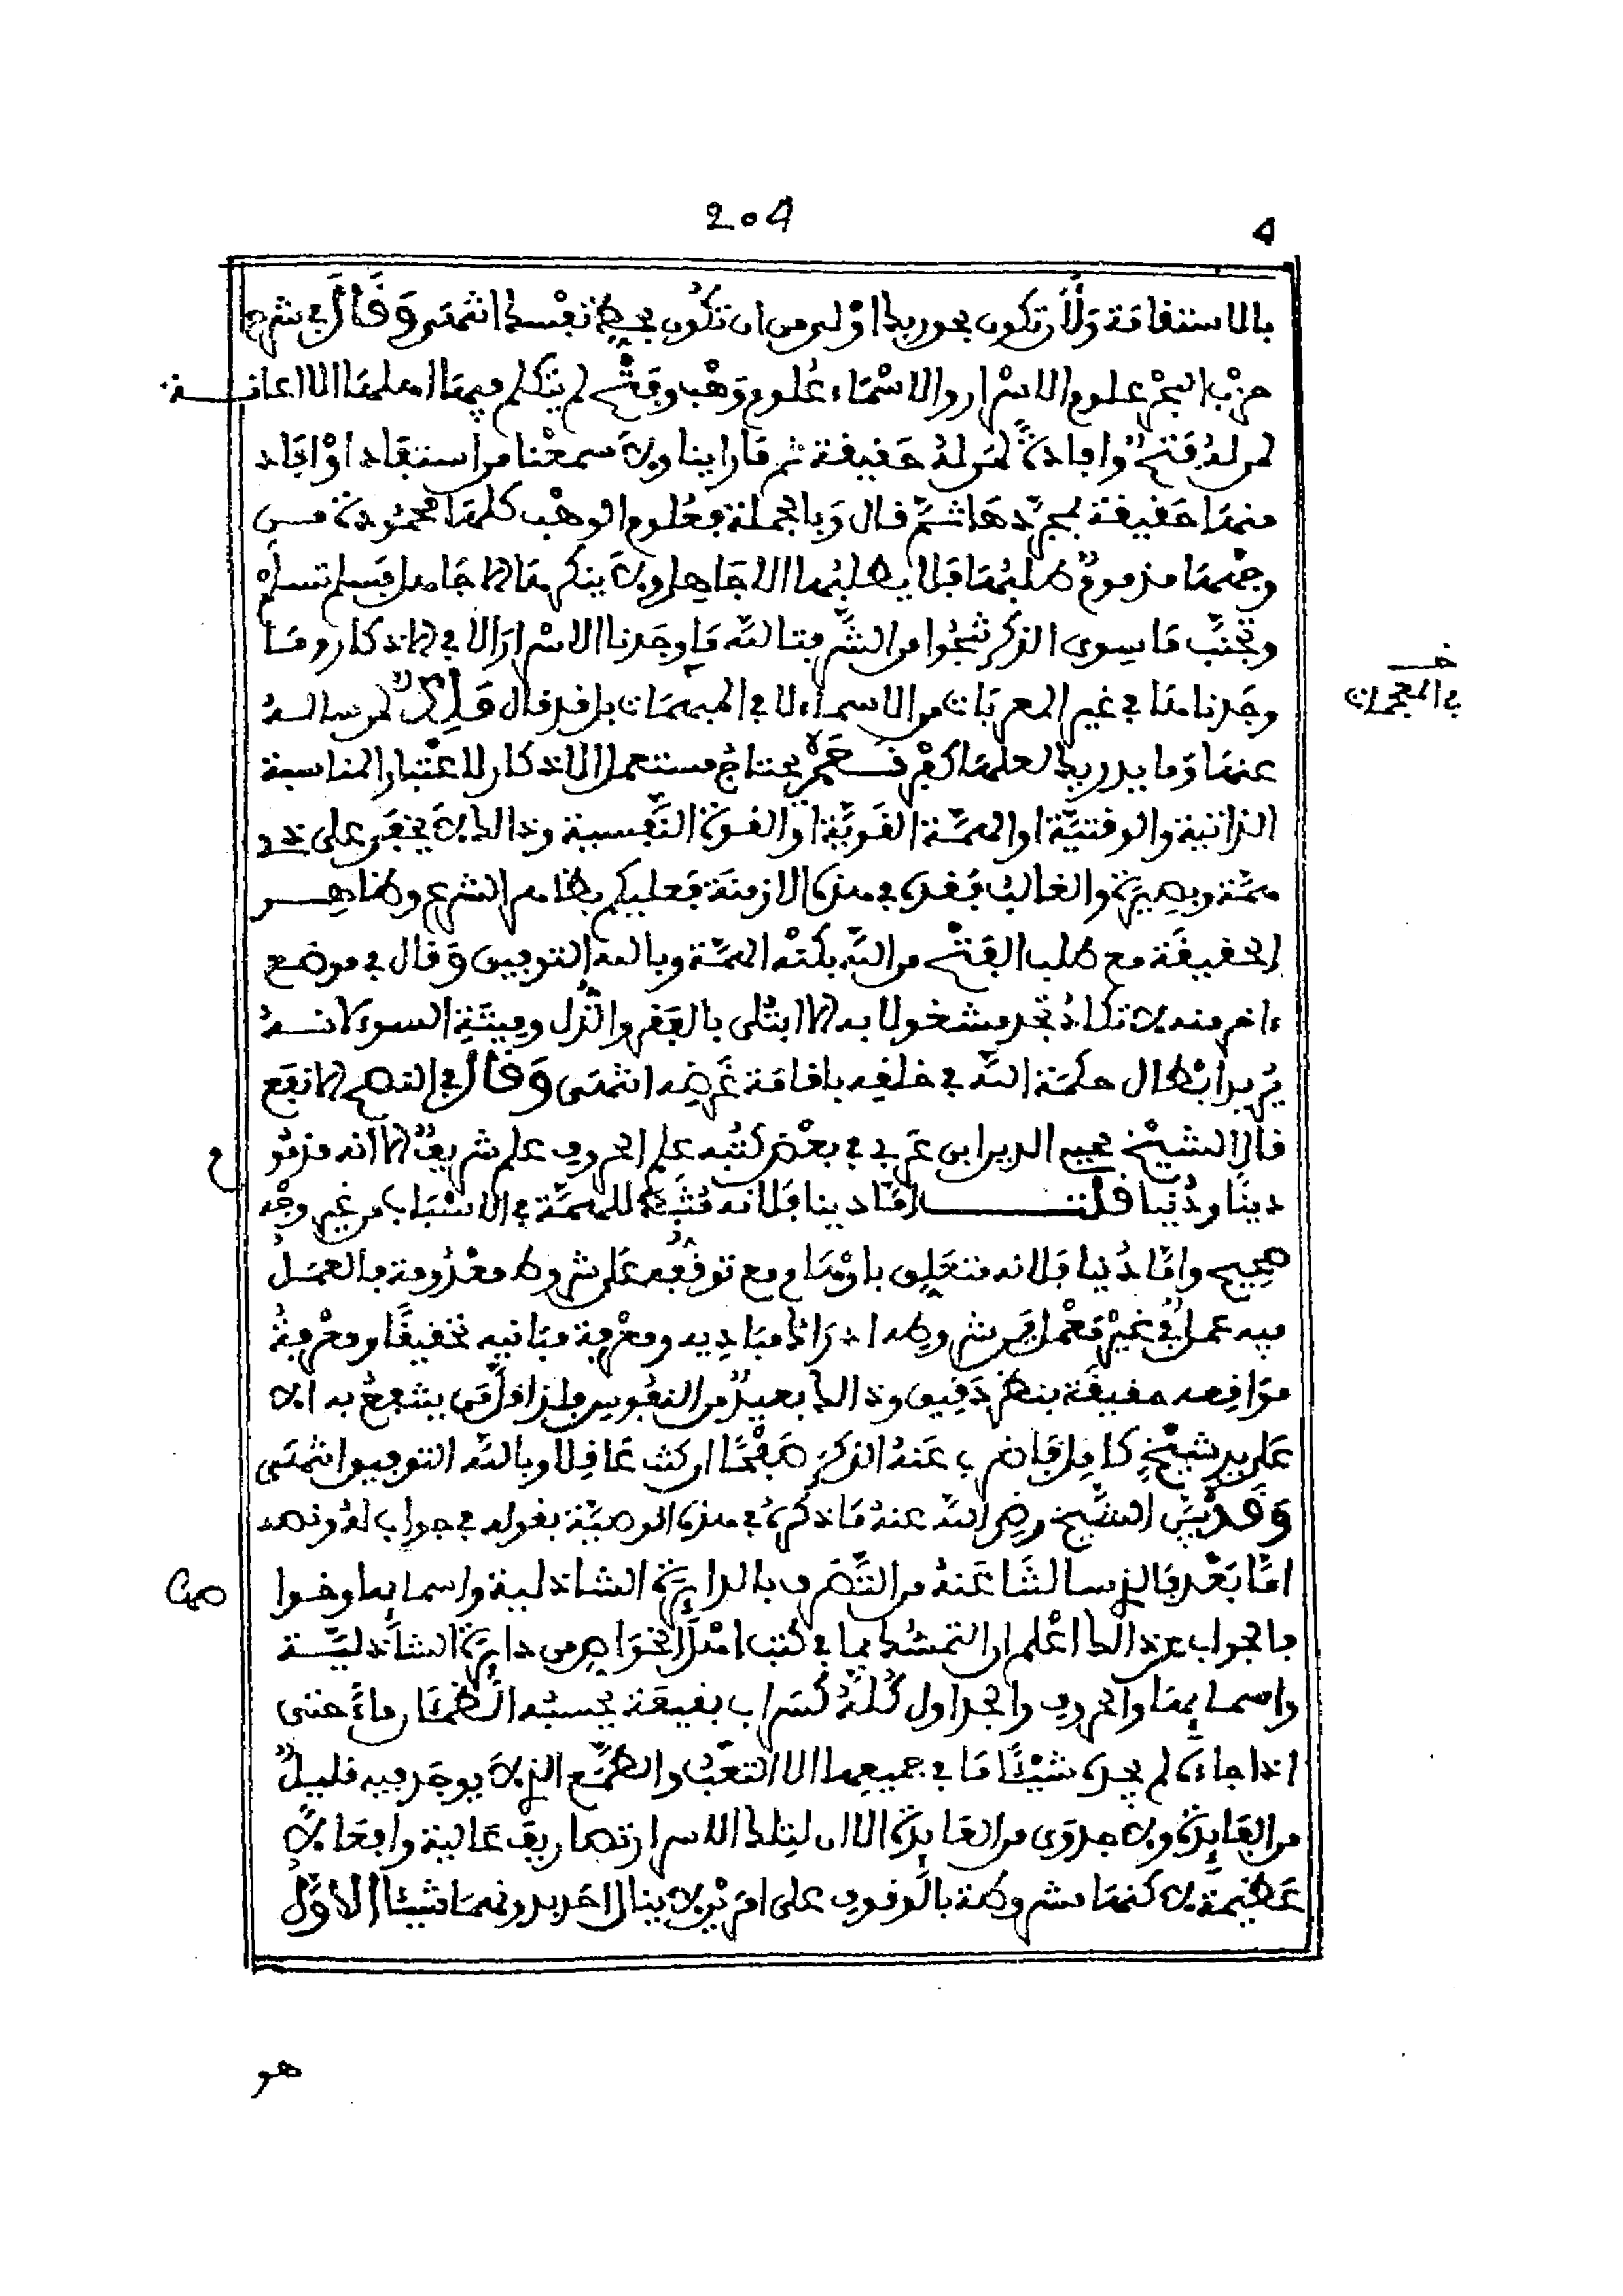 204
4
بالاستقامة ولأن تكون بحق ربك أولى من أن تكون بحظ نفسك انتهى وقال في شرح
حزب البحر علوم الأسرار والأسماء علوم وهب وفتح لم يتكلم فيها أهلها إلا إعانة
لمن له فتح وإفادة لمن له حقيقة ثم ما رأينا ولا سمعنا من استفاد أو أفاد
منها حقيقة بمجردها ثم قال وبالجملة فعلوم الوهب كلها محمودة من
وجهها مذموم طلبها فلا يطلبها إلا جاهل ولا ينكرها إلا جاهل فسلم تسلم
وتجنب ما سوى الذكر تنجوا من الشر فتالله ما وجدنا الأسرار إلا في الأذكار وما
خـ
في المعجمات
وجدناها في غير المعربات من الأسماء لا في المبهمات بل قد قال مالك لمن سأله
عنها وما يدريك لعلها كفر نعم يحتاج مستعمل الأذكار لاعتبار المناسبة
الذاتية والوقتية أو الهمة القوية أو القوة النفسية وذلك لا يخفى على ذي
همة وبصيرة والغالب فقده في هذه الأزمنة فعليكم بظاهر الشرع وظاهر
الحقيقة مع طلب الفتح من الله بكنه الهمة وبالله التوفيق وقال في موضع
ءاخر منه لا تكاد تجد مشغولا به إلا ابتلي بالفقر والذل وميتة السوء لأنه
يريد إبطال حكمة الله في خلقه بإقامة غرضه انتهى وقال في النصح الأنفع
قال الشيخ محيي الدين ابن عربي في بعض كتبه علم الحروف علم شريف إلا أنه مذمو
م
دينا ودنيا قلت أما دينا فلأنه مثبط للهمة في الأسباب من غير وجه
صحيح وأما دنيا فلأنه متعلق بأوهام مع توقفه على شروط معدومة فالعمل
فيه عمل في غير معمل فمن شروطه إدراك مباديه ومعرفة مبانيه تحقيقا ومعرفة
مواقعه حقيقة بنظر دقيق وذلك بعيد من النفوس فلذا قل من ينتفع به إلا
على يد شيخ كامل فاضرب عنه الذكر صفحا إن كنت عاقلا وبالله التوفيق انتهى
وقد بين الشيخ رضي الله عنه ما ذكره في هذه الوصية بقوله في جواب له ونصه
أما بعد فالذي سألتنا عنه من التصرف بالدايرة الشاذلية وأسمايها وخوا
صها
فالجواب عن ذلك اعلم أن التمسك بما في كتب أهل الخواص من دايرة الشاذلية
وأسمايها والحروف والجداول كله كسراب بقيعة يحسبه الظمئان ماء حتى
إذا جاءه لم يجده شيئا ما في جميعها إلا التعب والطمع الذي لا يوجد فيه قليل
من الفايدة ولا جدوى من الفايدة إلا أن لتلك الأسرار تصاريف عالية وأفعالا
عظيمة لاكنها مشروطة بالوقوف على أمر لا ينال أحد بدونها شيئا الأول
هو